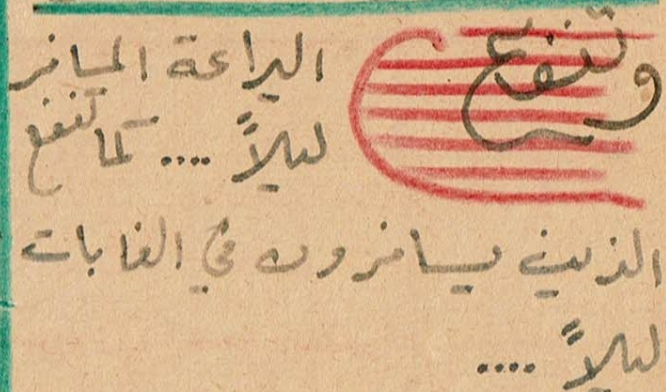 وتنفع اليراعة المسافر
ليلاً .... كما تنفع
الذين يسافرون في الغابات
ليلاً ....